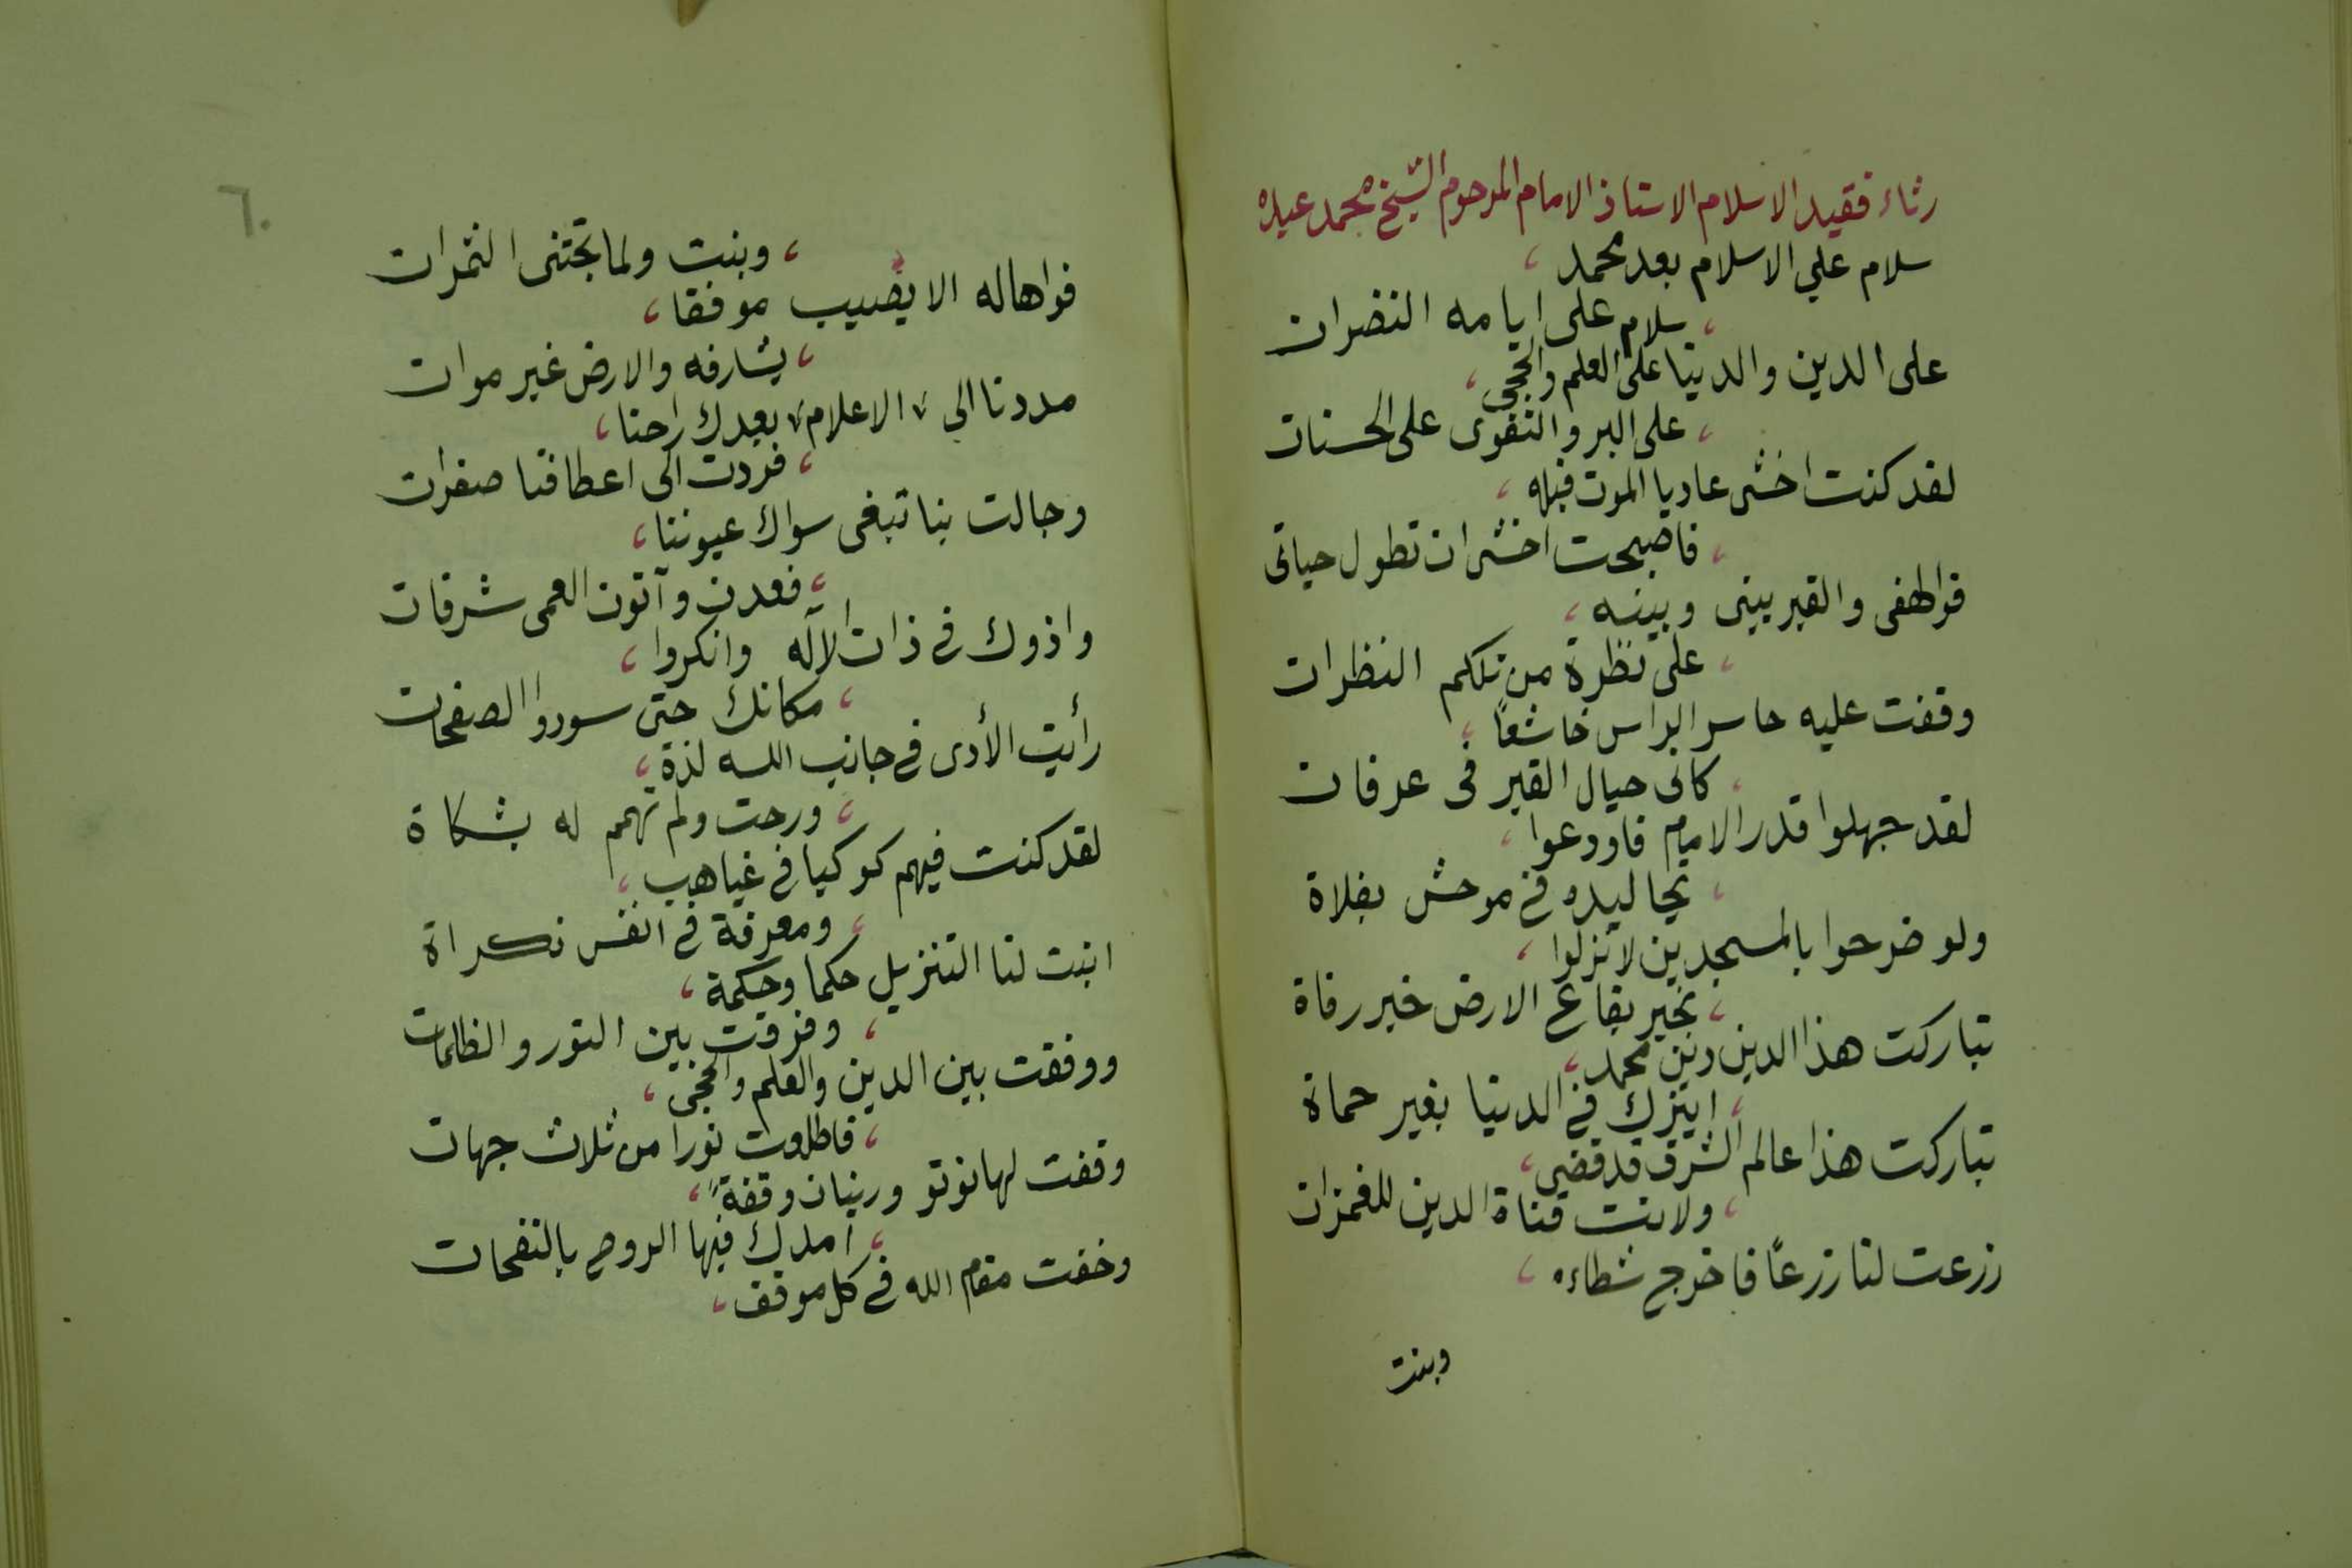 رثاء فقيد الاسلام الاستاذ الامام المرحوم الشيخ محمد عبده
سلام علي الاسلام بعد محمد ،
، سلام على ايامه النضرات
على الدين والدنيا على العلم والحجى ،
، على البر والتقوى على الحسنات
لقد كنت اخشى عاديا الموت قبله ،
، فاصبحت اخشى ان تطول حياتى
فوالهفى والقبر بينى وبينه ،
، على نظرة من تلكم النظرات
وقفت عليه حاسر الراس خاشعاً ،
، كانى حيال القبر فى عرفات
لقد جهلوا قدر الامام فاودعوا ،
، تجاليده فى موحش بفلاة
ولو ضرحوا بالمسجدين لانزلوا ،
، بخير بقاع الارض خير رفاة
تباركت هذا الدين دين محمد ،
، ايترك فى الدنيا بغير حماة
تباركت هذا عالم الشرق قد قضى ،
، ولانت قناة الدين للغمزات
زرعت لنا زرعاً فاخرج شطاءه ،
وبنت
٦٠
، وبنت ولما تجتنى الثمرات
فواها له الا يصيب موفقا ،
، يشارفه والارض غير موات
مددنا الى " الاعلام " بعدك راحنا ،
، فردت الى اعطافنا صفرات
وجالت بنا تبغى سواك عيوننا ،
، فعدن وآثون العمى شرقات
واذوك فى ذات الآله وانكروا ،
، مكانك حتى سودوا الصفحات
رأيت الأذى فى جانب الله لذة ،
، ورحت ولم تهمم له بشكاة
لقد كنت فيهم كوكبا فى غياهب ،
، ومعرفة فى انفس نكراة
ابنت لنا التنزيل حكما وحكمة ،
، وفرقت بين النور والظلمات
ووفقت بين الدين والعلم والحجى ،
، فاطلعت نورا من ثلاث جهات
وقفت لهانوتو ورينان وقفةً ،
، امدك فيها الروح بالنفحات
وخفت مقام الله فى كل موقف ،